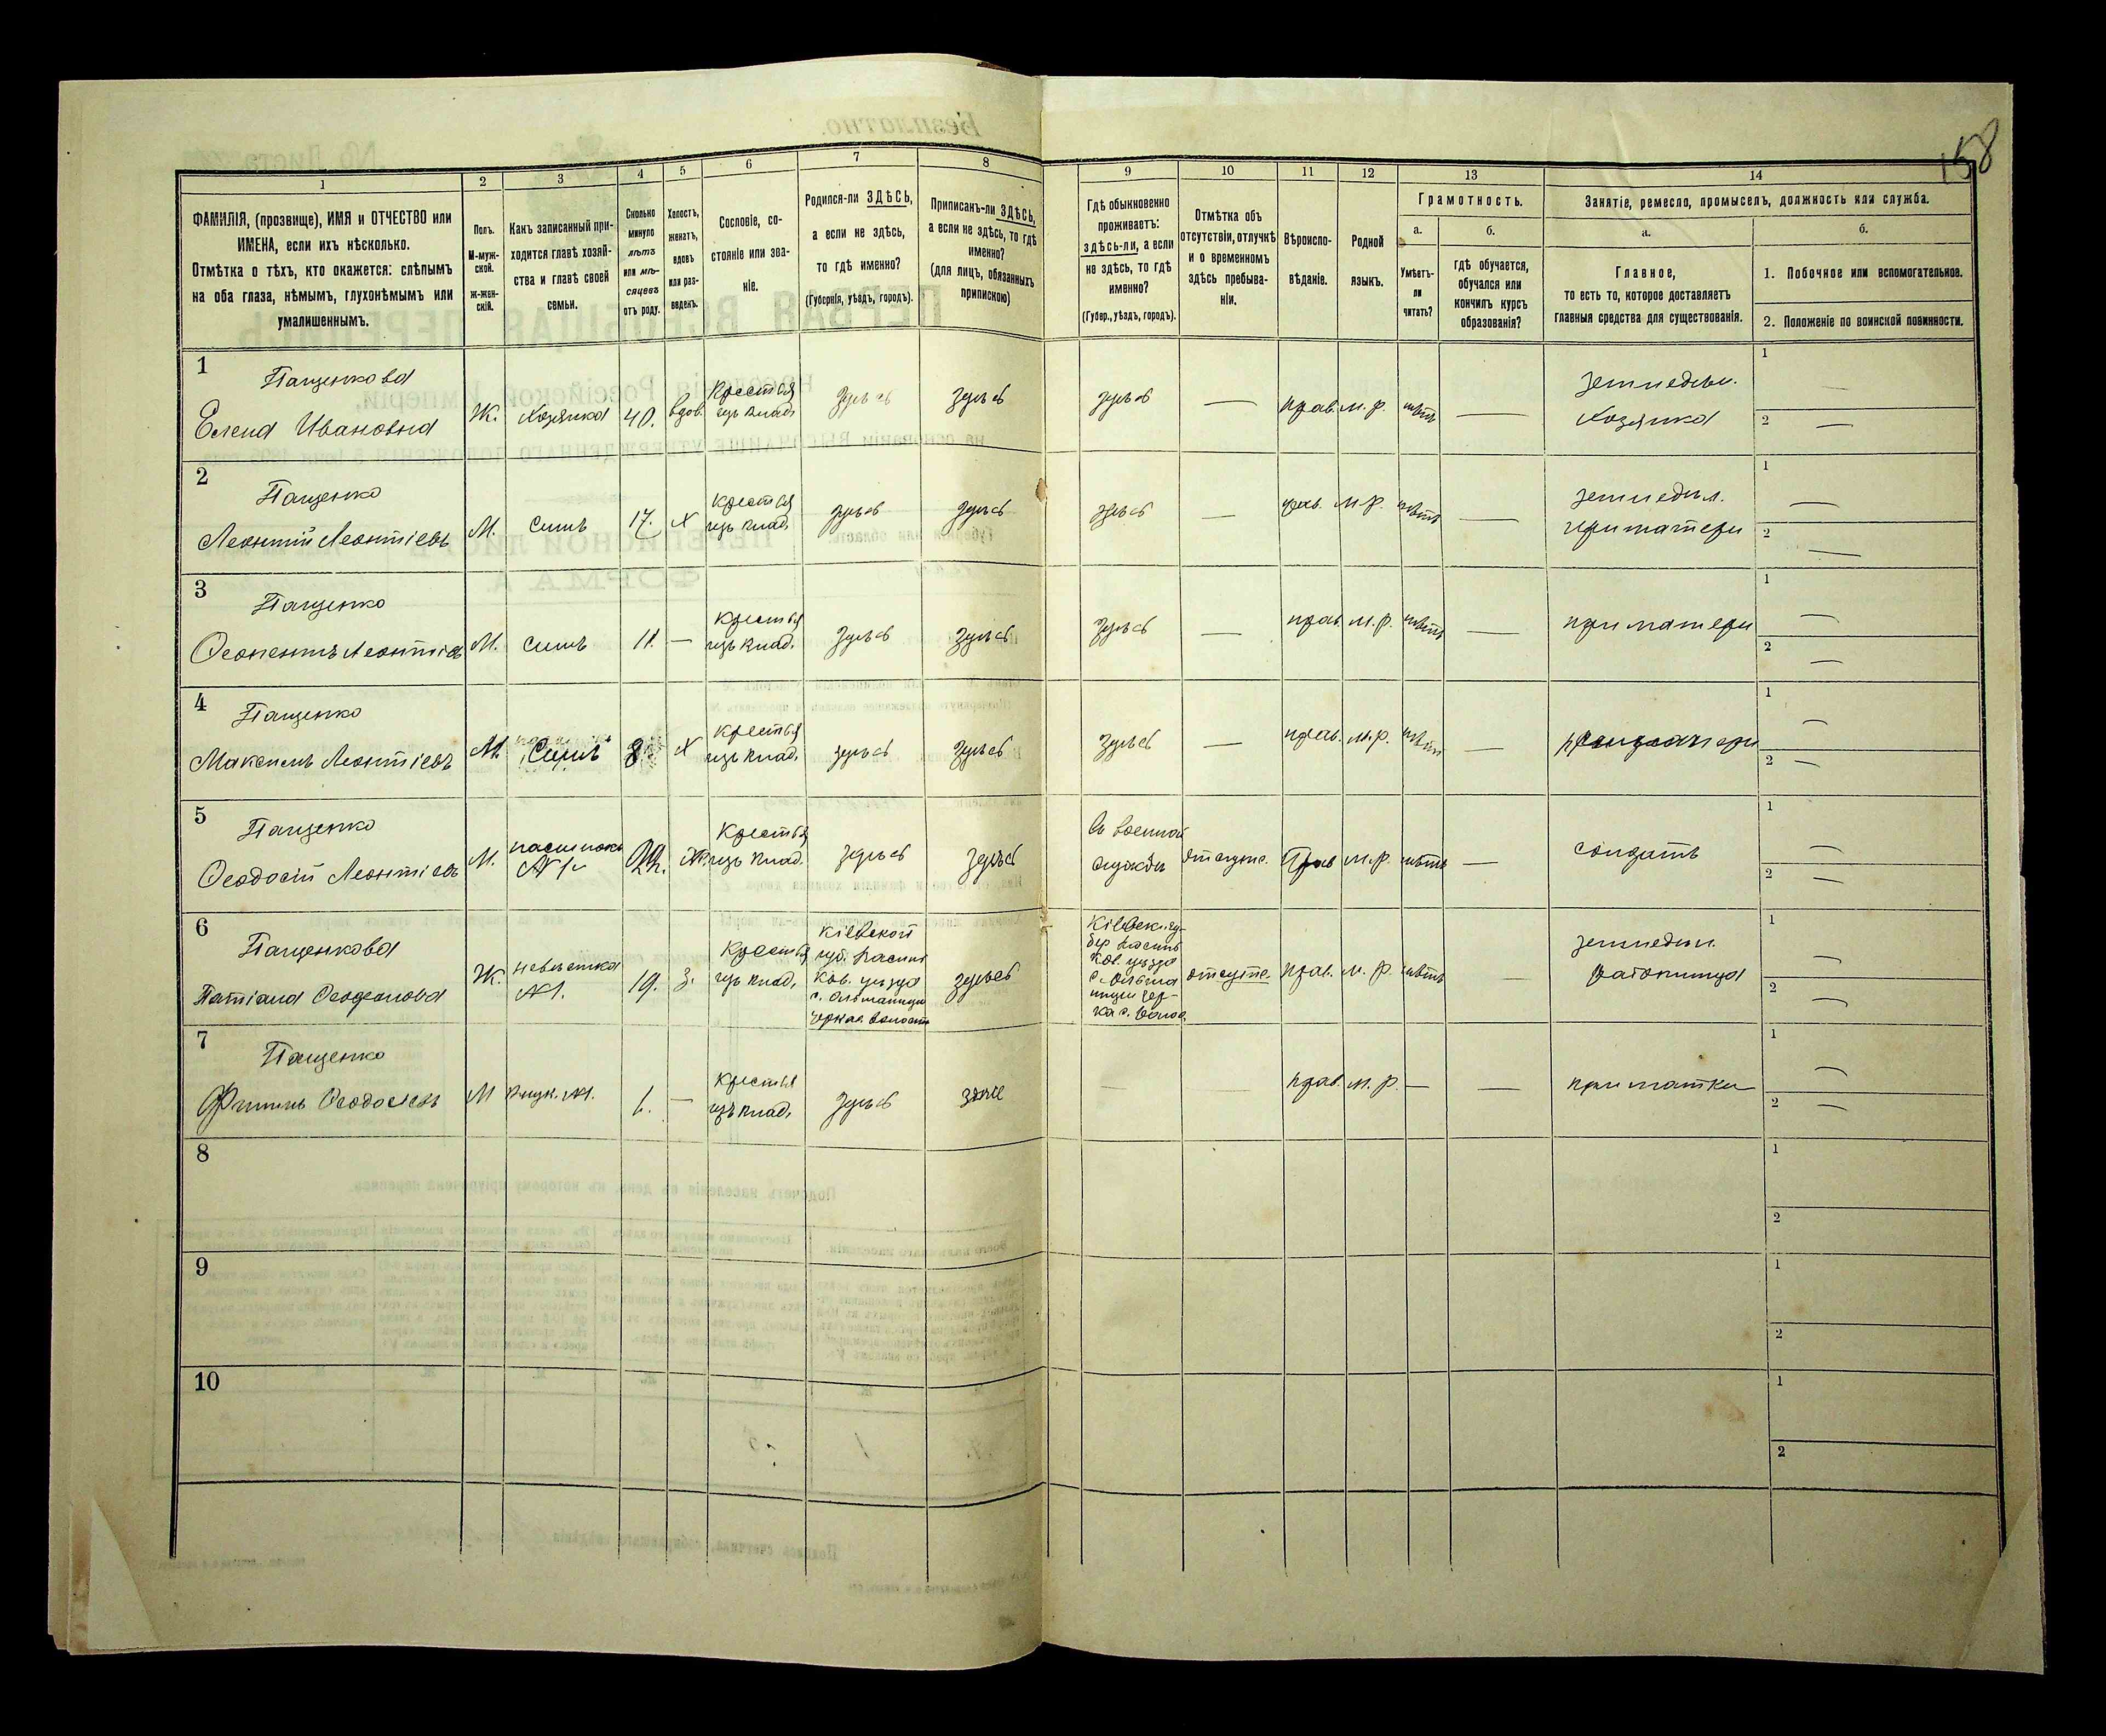 158
1 2 3 4 5 6 7 8 9 10 11 12 13 14
ФАМИЛІЯ, (прозвище), ИМЯ и ОТЧЕСТВО или
ИМЕНА, если ихъ нѣсколько.
Отмѣтка о тѣхъ, кто окажется: слѣпымъ
на оба глаза, нѣмымъ, глухонѣмымъ или
умалишеннымъ.
Полъ.
М-муж-
ской.
Ж-жен-
скій.
Какъ записанный при-
ходится главѣ хозяй-
ства и главѣ своей
семьи.
Сколько
минуло
лѣтъ
или мѣ-
сяцевъ
отъ роду.
Холостъ,
женатъ,
вдовъ
или раз-
веденъ.
Сословіе, со-
стояніе или зва-
ніе.
Родился-ли ЗДѢСЬ,
а если не здѣсь,
то гдѣ именно?
(Губернія, уѣздъ, городъ).
Приписанъ-ли ЗДѢСЬ,
а если не здѣсь, то гдѣ
именно?
(для лицъ, обязанныхъ
припискою)
Гдѣ обыкновенно
проживаетъ:
здѣсь-ли, а если
не здѣсь, то гдѣ
именно?
(Губер., уѣздъ, городъ).
Отмѣтка объ
отсутствіи, отлучкѣ
и о временномъ
здѣсь пребыва-
ніи.
Вѣроиспо-
вѣданіе.
Родной
языкъ.
Грамотность.
а.
Умѣетъ-
ли
читать?
б.
гдѣ обучается,
обучался или
кончилъ курсъ
образованія?
Занятіе, ремесло, промыселъ, должность или служба.
а.
Главное,
то есть то, которое доставляетъ
главныя средства для существованія.
б.
1. Побочное или вспомогательное.
2. Положеніе по воинской повинности.
1
Пащенкова
Елена Ивановна
Ж.
Хозяйка
40.
вдов.
Крестья
изъ влад.
здѣсь
здѣсь
здѣсь
—
прав.
м. р.
нѣтъ
—
земледѣл.
Хозяйка
1 —
2 —
2
Пащенко
Леонтій Леонтіевъ
М.
Сынъ
17.
Х
Крестья
изъ влад.
здѣсь
здѣсь
здѣсь
—
прав.
м. р.
нѣтъ
—
земледѣл.
при матери
1 —
2 —
3
Пащенко
М.
Сынъ
11.
—
Крестья
изъ влад.
здѣсь
здѣсь
здѣсь
—
прав.
м. р.
нѣтъ
—
при матери
1 —
2 —
4
Пащенко
Максимъ Леонтіевъ
М.
Сынъ
8
Х
Крестья
изъ влад.
здѣсь
здѣсь
здѣсь
—
прав.
м. р.
нѣтъ
—
1 —
2 —
5
Пащенко
Ѳеодосій Леонтіевъ
М.
пасынокъ
№ 1
22.
Ж.
Крестья
изъ влад.
здѣсь
здѣсь
въ военной
службѣ
отсутс.
Прав
м. р.
нѣтъ
—
солдатъ
1 —
2 —
6
Пащенкова
Ж.
невѣстка
№ 1.
19.
З.
Крестья
изъ влад.
Кіевской
губ. Васил
ков. уѣзда
здѣсь
Кіевск. гу-
бер Васил
ков. уѣзда
отсутс.
прав.
м. р.
нѣтъ
—
земледѣл.
работница
1 —
2 —
7
Пащенко
М
внук. №1.
1.
—
Крестья
изъ влад.
здѣсь
—
—
прав.
м. р.
—
—
при матки
1 —
2 —
8
1
2
9
1
2
10
1
2